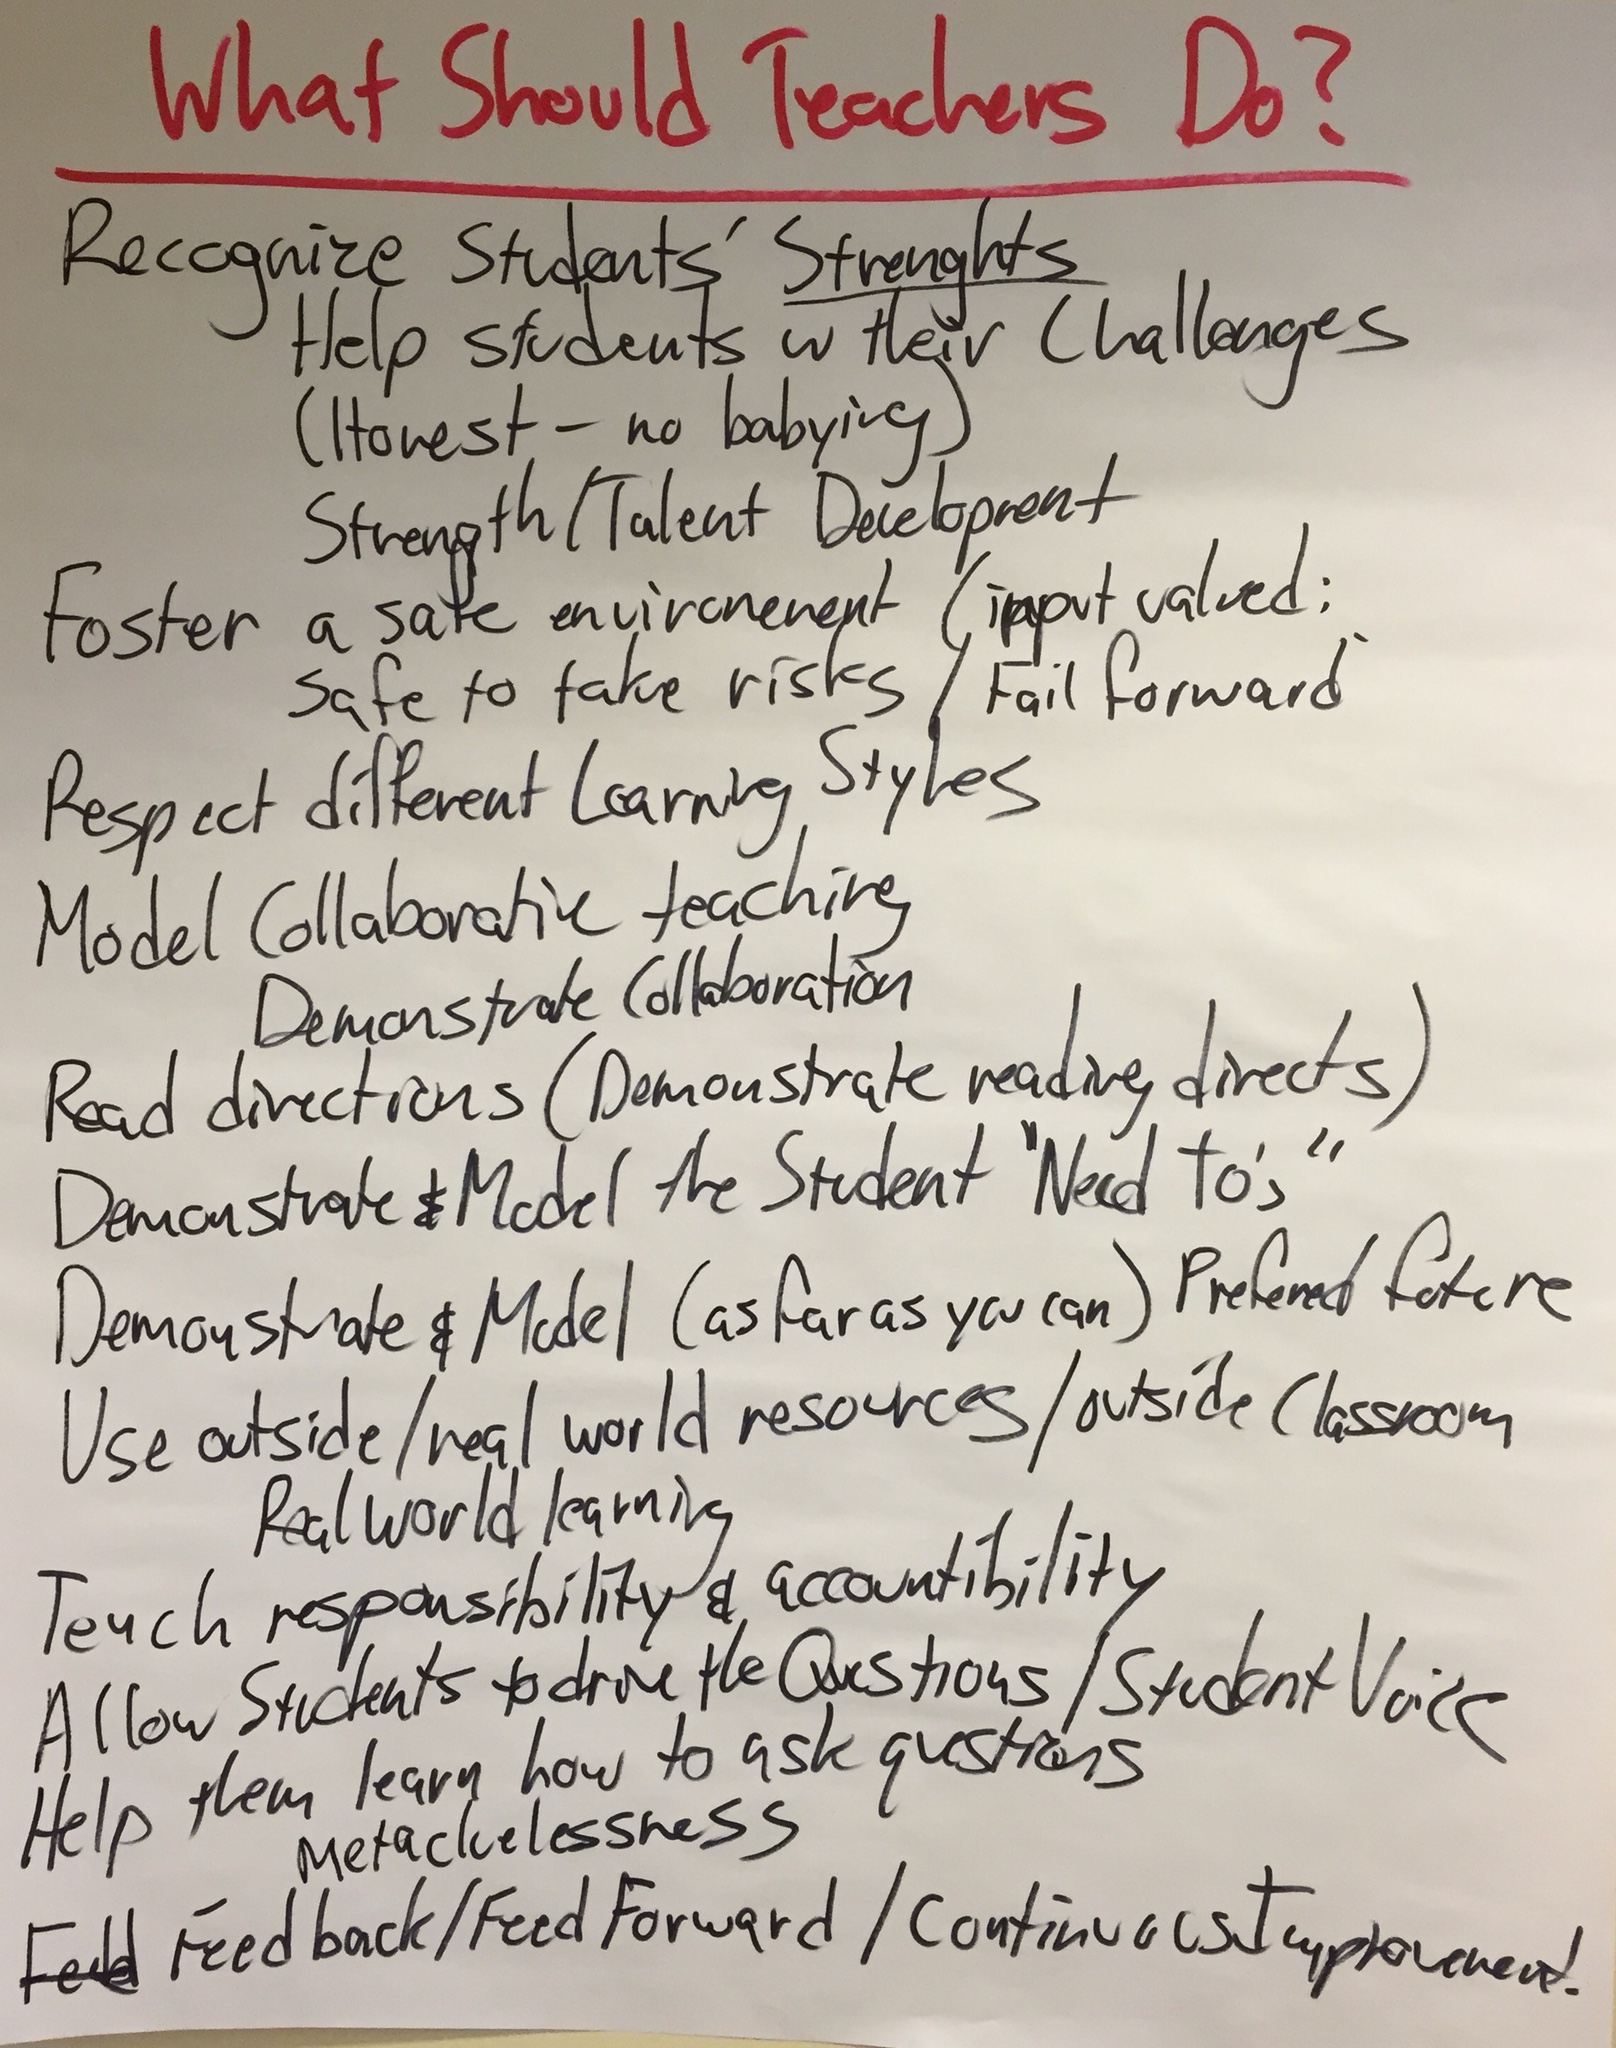 What Should Teachers Do?
Recognize Students' Strenghts
Help students w their Challenges
(Honest - no babying)
Strength/Talent Development
Foster a safe environenent (input valued:
Safe to take risks / Fail forward
Respect different Learning Styles
Model Collaborative teaching
Demonstrate Collaboration
Read directions (Demonstrate reading directs)
Demonstrate & Model the Student "Need To's"
Demonstrate & Model (as far as you can) Preferred future
Use outside/real world resources/outside Classroom
Real world learning
Teach responsibility & accountibility
Allow Students to drive the Questions/Student Voice
Help them learn how to ask questions
Metacluelessness
Feed Feedback/Feed Forward/Continuous Improvement.